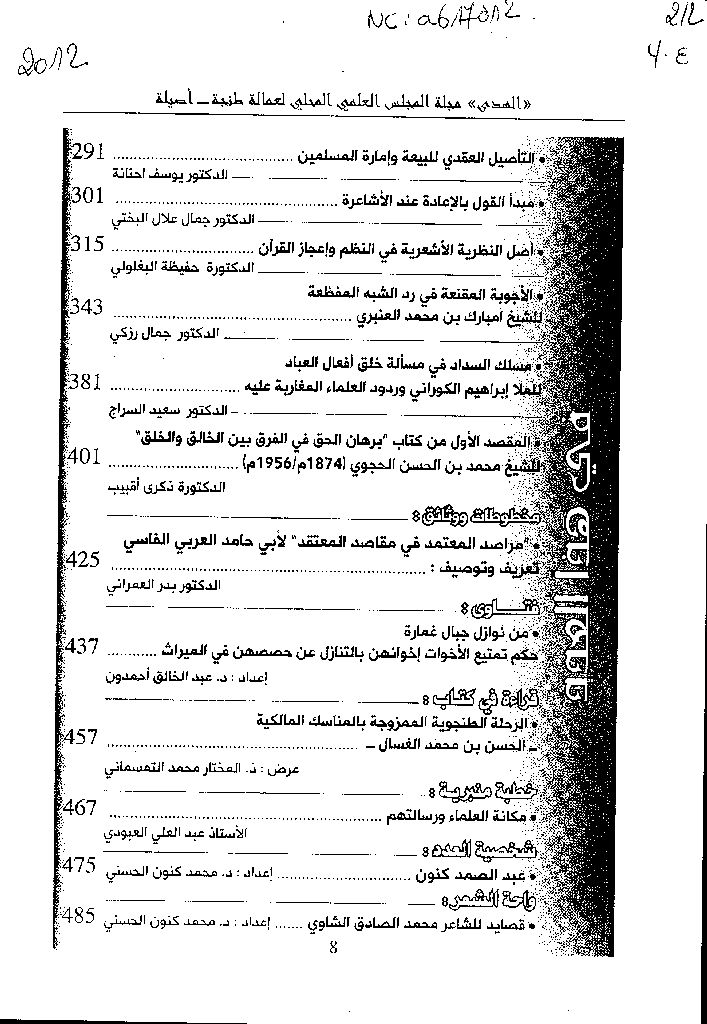 NC: a617012
2/2
2012
4.ع
«الهدى» مجلة المجلس العلمي المحلي لعمالة طنجة – أصيلة
• التأصيل العقدي للبيعة وإمارة المسلمين ........ 291
الدكتور يوسف احنانة
• مبدأ القول بالإعادة عند الأشاعرة ........ 301
الدكتور جمال علال البختي
• أصل النظرية الأشعرية في النظم وإعجاز القرآن ........ 315
الدكتورة حفيظة البغلولي
• الأجوبة المقنعة في رد الشبه المفظعة
للشيخ امبارك بن محمد العنبري ........ 343
الدكتور جمال رزكي
• مسلك السداد في مسألة خلق أفعال العباد
للملا إبراهيم الكوراني وردود العلماء المغاربة عليه ........ 381
الدكتور سعيد السراج
• المقصد الأول من كتاب "برهان الحق في الفرق بين الخالق والخلق"
للشيخ محمد بن الحسن الحجوي (1874م/1956م) ........ 401
الدكتورة ذكرى أقبيب
مخطوطات ووثائق :
• "مراصد المعتمد في مقاصد المعتقد" لأبي حامد العربي الفاسي
تعريف وتوصيف : ........ 425
الدكتور بدر العمراني
فتـــاوى :
• من نوازل جبال غمارة
حكم تمتيع الأخوات إخوانهن بالتنازل عن حصصهن في الميراث ........ 437
إعداد : د. عبد الخالق أحمدون
قراءة في كتاب :
• الرحلة الطنجوية الممزوجة بالمناسك المالكية
– الحسن بن محمد الغسال – ........ 457
عرض : ذ. المختار محمد التمسماني
خطبة منبرية :
• مكانة العلماء ورسالتهم ........ 467
الأستاذ عبد العلي العبودي
شخصية العدد :
• عبد الصمد كنون ........ إعداد : د. محمد كنون الحسني 475
واحة الشعر :
• قصايد للشاعر محمد الصادق الشاوي ....... إعداد : د. محمد كنون الحسني 485
8